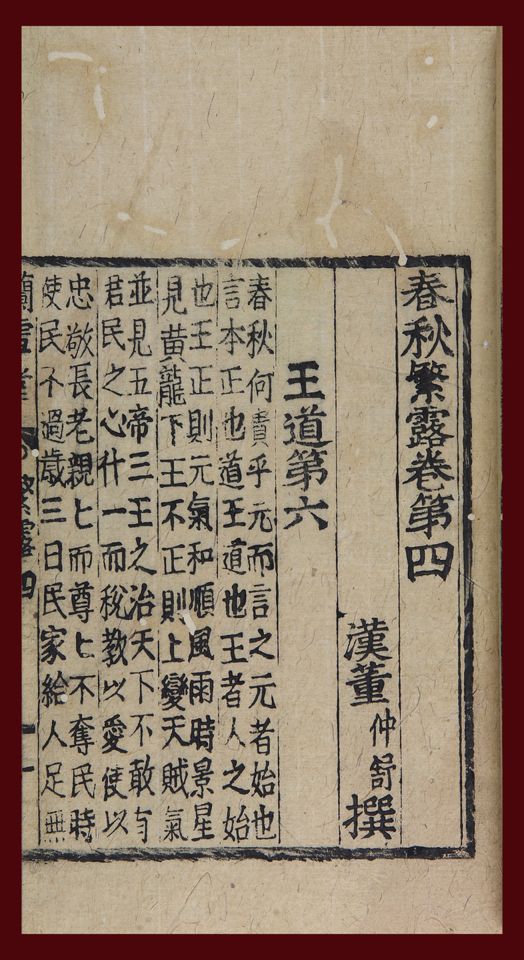 春秋繁露卷第四
漢董仲舒撰
王道第六
春秋何貴乎元而言之元者始也
言本正也道王道也王者人之始
也王正則元氣和順風雨時景星
見黃龍下王不正則上變天賊氣
並見五帝三王之治天下不敢有
君民之心什一而稅教以愛使以
忠敬長老親匕而尊匕不奪民時
使民不過歲三日民家給人足無
蘭雪堂 繁露四